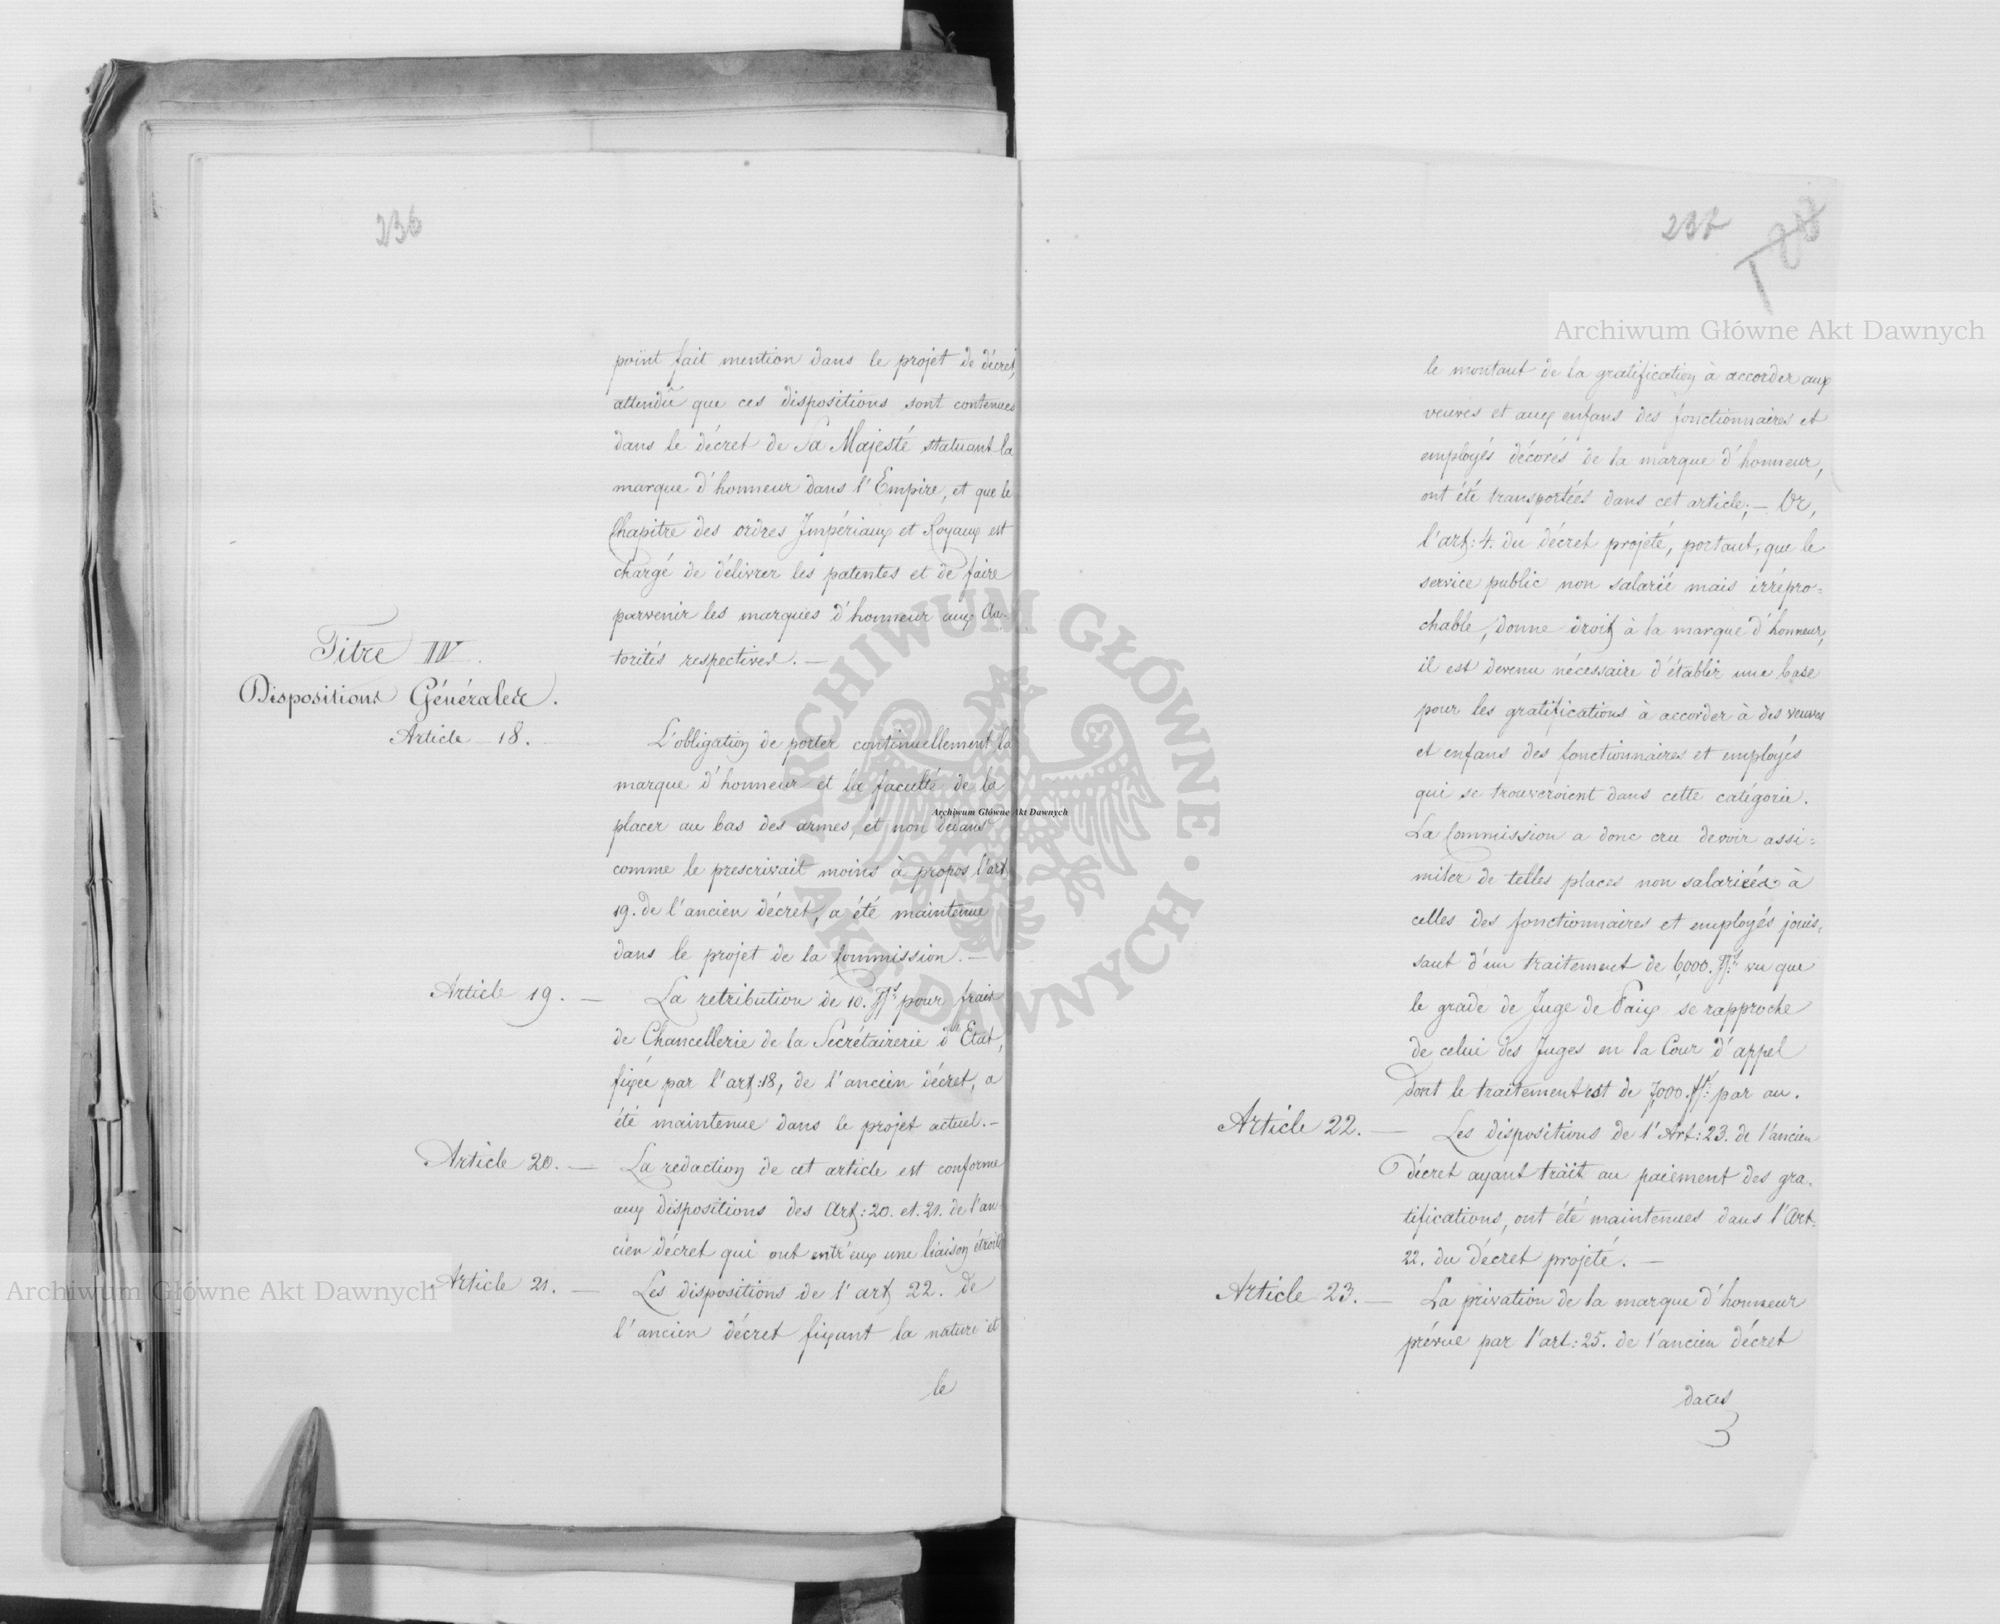 236
point fait mention dans le projet de décret,
attendû que ces dispositions sont contenues
dans le décret de Sa Majesté statuant la
marque d'honneur dans l'Empire, et que le
Chapitre des ordres Impériaux et Royaux est
chargé de délivrer les patentes et de faire
parvenir les marques d'honneur aux Au-
torités respectives. —
Titre IV.
Dispositions Générales.
Article 18.
L'obligation de porter continuellement la
marque d'honneur et la faculté de la
placer au bas des armes, et non dedans
comme le prescrivait moins à propos l'art
19. de l'ancien décret, a été maintenue
dans le projet de la Commission. —
Article 19. —
La retribution de 10. fls pour frais
de Chancellerie de la Secrétairerie d'Etat,
fixée par l'art: 18, de l'ancien décret, a
été maintenue dans le projet actuel. —
Article 20. —
La redaction de cet article est conforme
aux dispositions des Art: 20. et 21. de l'an-
cien décret qui ont entr'eux une liaison étroite
Article 21. —
Les dispositions de l'art 22. de
l'ancien décret fixant la nature et
le
237
le montant de la gratification à accorder aux
veuves et aux enfans des fonctionnaires et
employés décorés de la marque d'honneur,
ont été transportées dans cet article; — Or,
l'art: 4. du décret projeté, portant, que le
service public non salarié mais irrépro=
chable, donne droit à la marque d'honneur,
il est devenu nécessaire d'établir une base
pour les gratifications à accorder à des veuves
et enfans des fonctionnaires et employés
qui se trouveroient dans cette catégorie.
La Commission a donc cru devoir assi=
miler de telles places non salariées à
celles des fonctionnaires et employés jouis-
sant d'un traitement de 6,000. fls vu que
le grade de Juge de Paix se rapproche
de celui des Juges en la Cour d'appel
dont le traitement est de 7,000. fls: par an.
Article 22. —
Les dispositions de l'Art: 23. de l'ancien
décret ayant trait au paiement des gra-
tifications, ont été maintenues dans l'Art-
22. du décret projeté. —
Article 23. —
La privation de la marque d'honneur
prévue par l'art: 25. de l'ancien décret
dans
Archiwum Główne Akt Dawnych
Archiwum Główne Akt Dawnych
Archiwum Główne Akt Dawnych
ARCHIWUM GŁÓWNE · AKT DAWNYCH ·